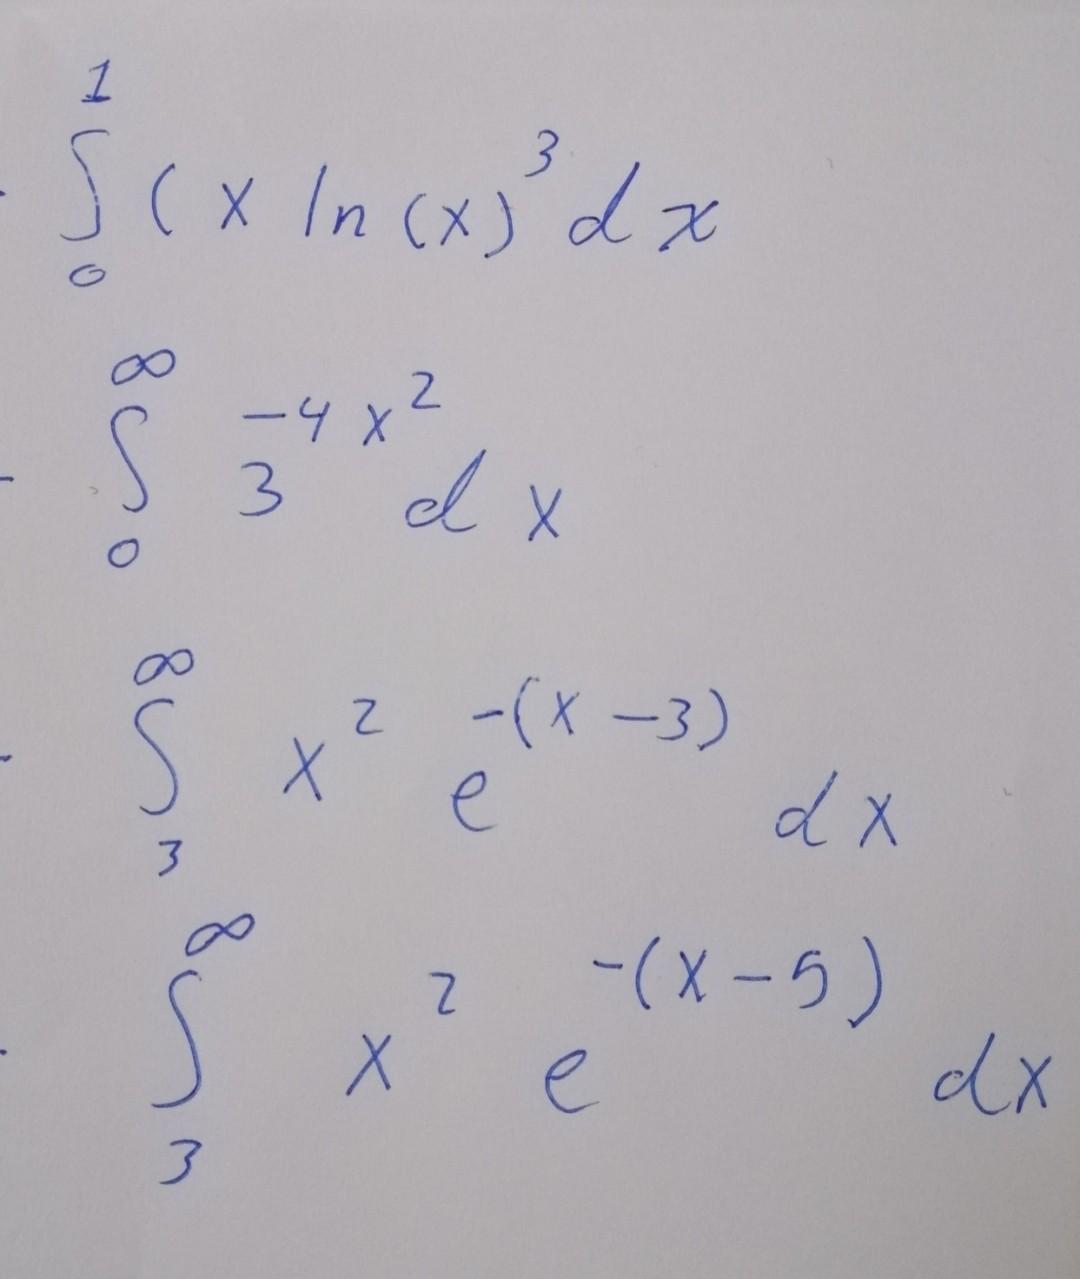 ∫₀¹ (x ln(x)³ dx
∫₀^∞ 3^(-4x²) dx
∫₃^∞ x² e^(-(x-3)) dx
∫₃^∞ x² e^(-(x-5)) dx